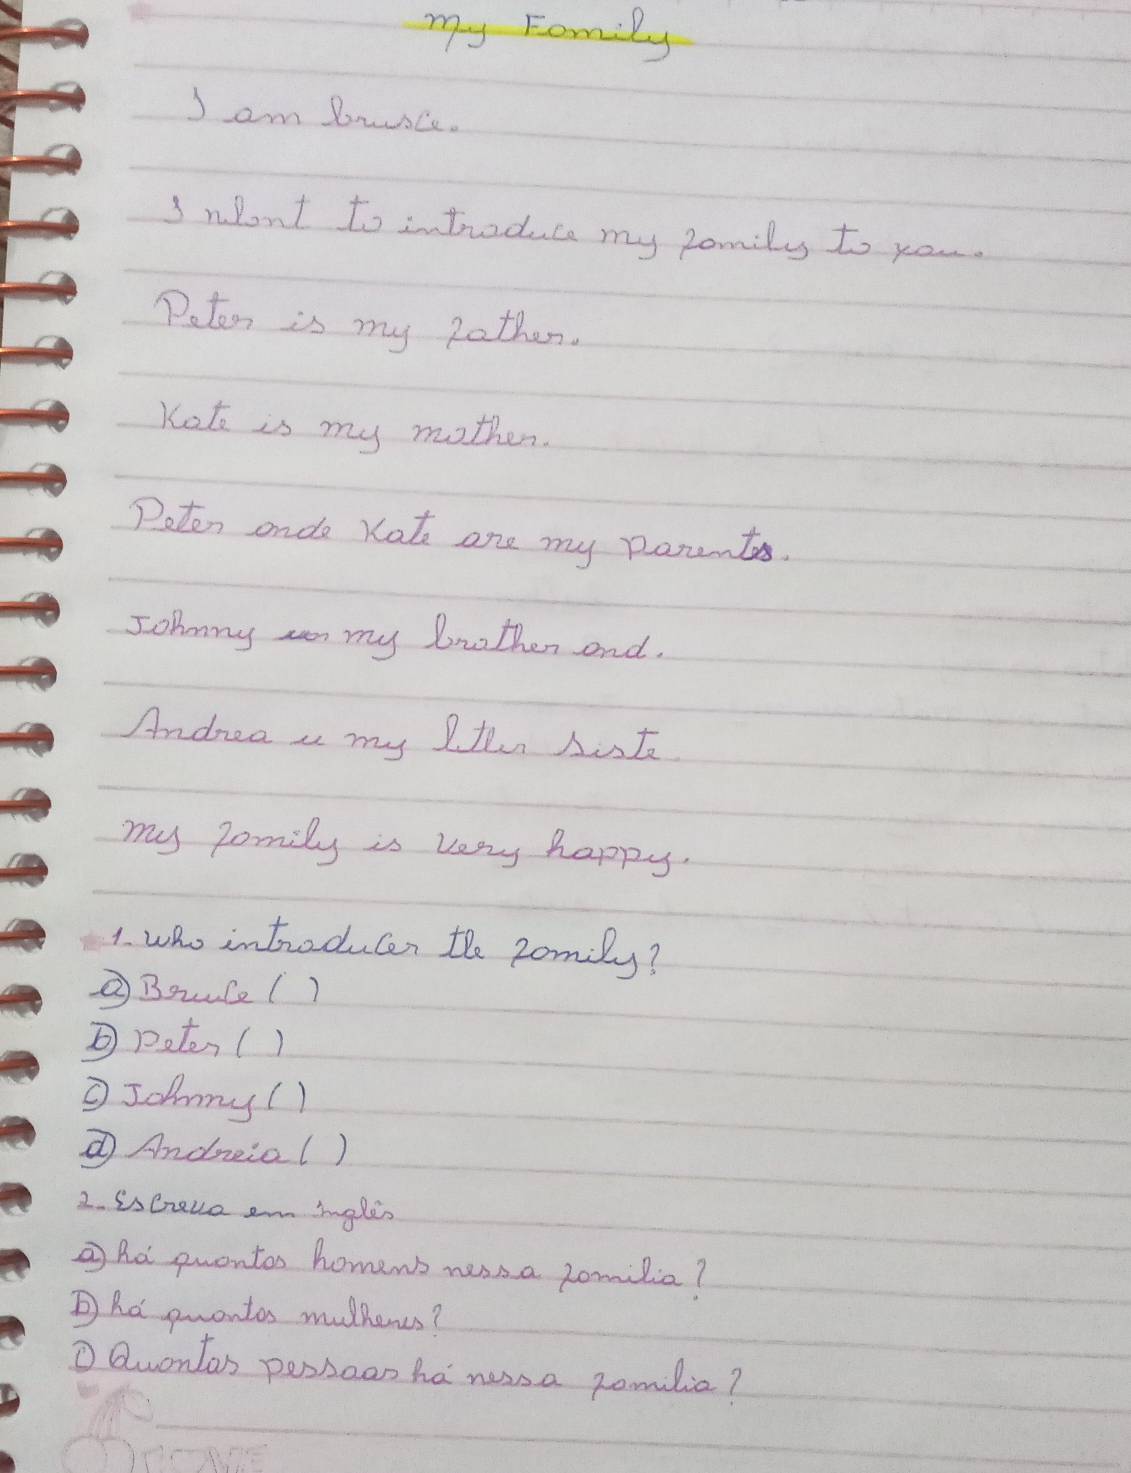 My Family
I am Brusce.
I want to introduce my family to you.
Peter is my father.
Kate is my mother.
Peter ande Kate are my parents.
Johnny my brother and.
Andrea is my litler siste
my family is very happy.
1. Who introducer the family?
a) Bruce ( )
b) Peter ( )
c) Johnny ( )
d) Andreia ( )
2. Escreva em inglês
a) há quantos homens nessa familia?
b) há quantos mulheres?
Quantas pessoas há nessa familia?